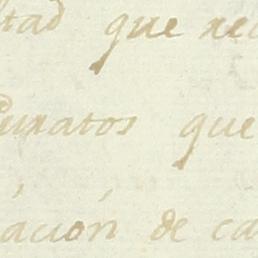 ltad que nec
Curatos que
ación de ca